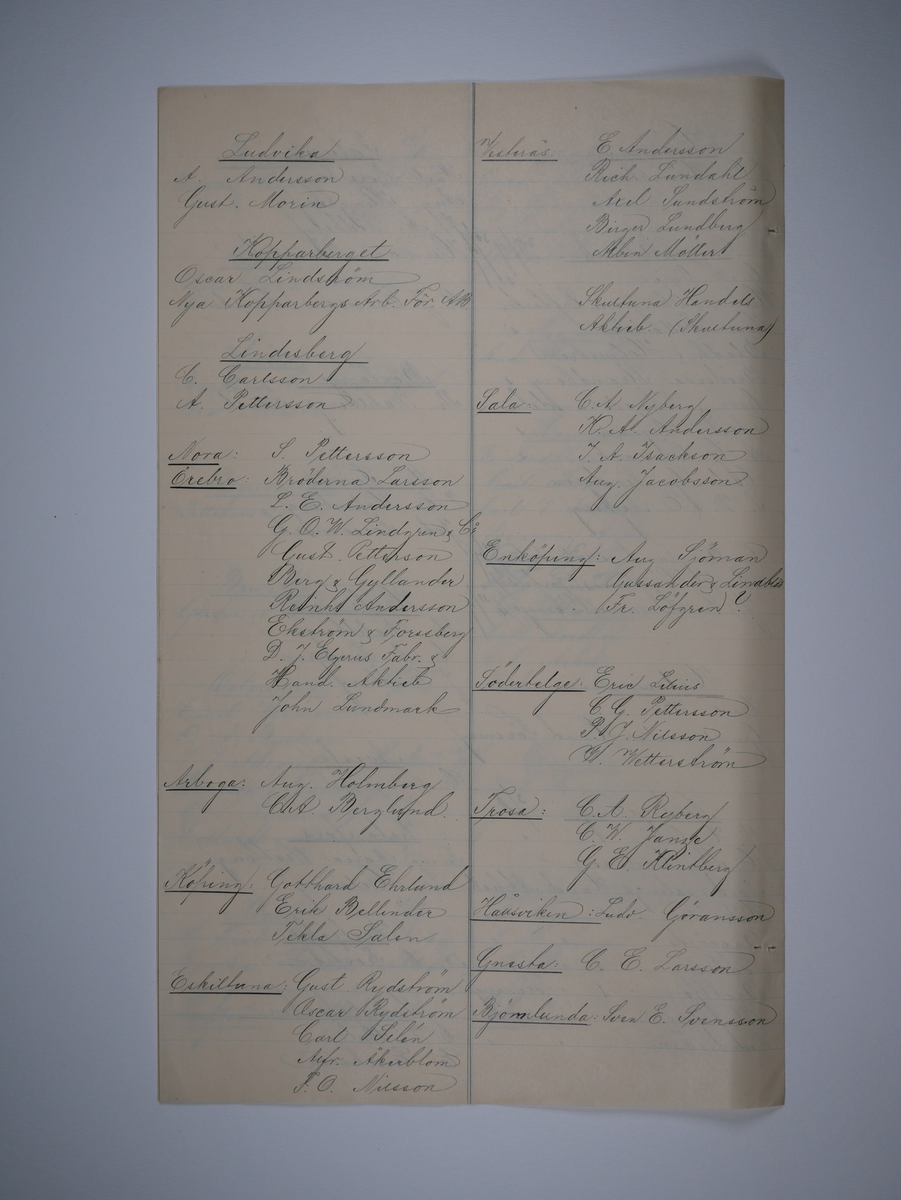 Ludvika
A. Andersson
Gust. Morin
Kopparberget
Oscar Lindström
Nya Kopparbergs Arb. För. AB.
Lindesberg
C. Carlsson
A. Pettersson
Nora: S. Pettersson
Örebro: Bröderna Larsson
L. E. Andersson
G. O. W. Lindgren & Co
Gust. Petterson
Berg & Gyllander
Reinh. Andersson
Ekström & Forssberg
D. J. Elgerus Fabr. &
Hand. Aktieb
John Lundmark
Arboga: Aug. Holmberg
C. A. Berglund.
Köping: Gotthard Ehrlund
Erik Bellinder
Tekla Salen
Eskiltuna: Gust Rydström
Oscar Rydström
Carl Selén
Alfr. Åkerblom
F. O. Nilsson
Westerås: E. Andersson
Rich. Lundahl
Axel Sundström
Birger Lundberg
Albin Möller
Skultuna Handels
Aktieb. (Skultuna)
Sala: C. A. Nyberg
K. A. Andersson
I. A. Isackson
Aug. Jacobsson
Enköping: Aug Sjöman
Gussander & Lindblad
Fr. Löfgren ?
Södertelge: Eric Lilius
C. G. Pettersson
P. J. Nilsson
W. Wetterström
Trosa: C. A. Ryberg
C. W. Janse
G. E. Klintberg
Håusviken: Ludv. Göransson
Gnesta: C. E. Larsson
Björnlunda: Sven E. Svensson